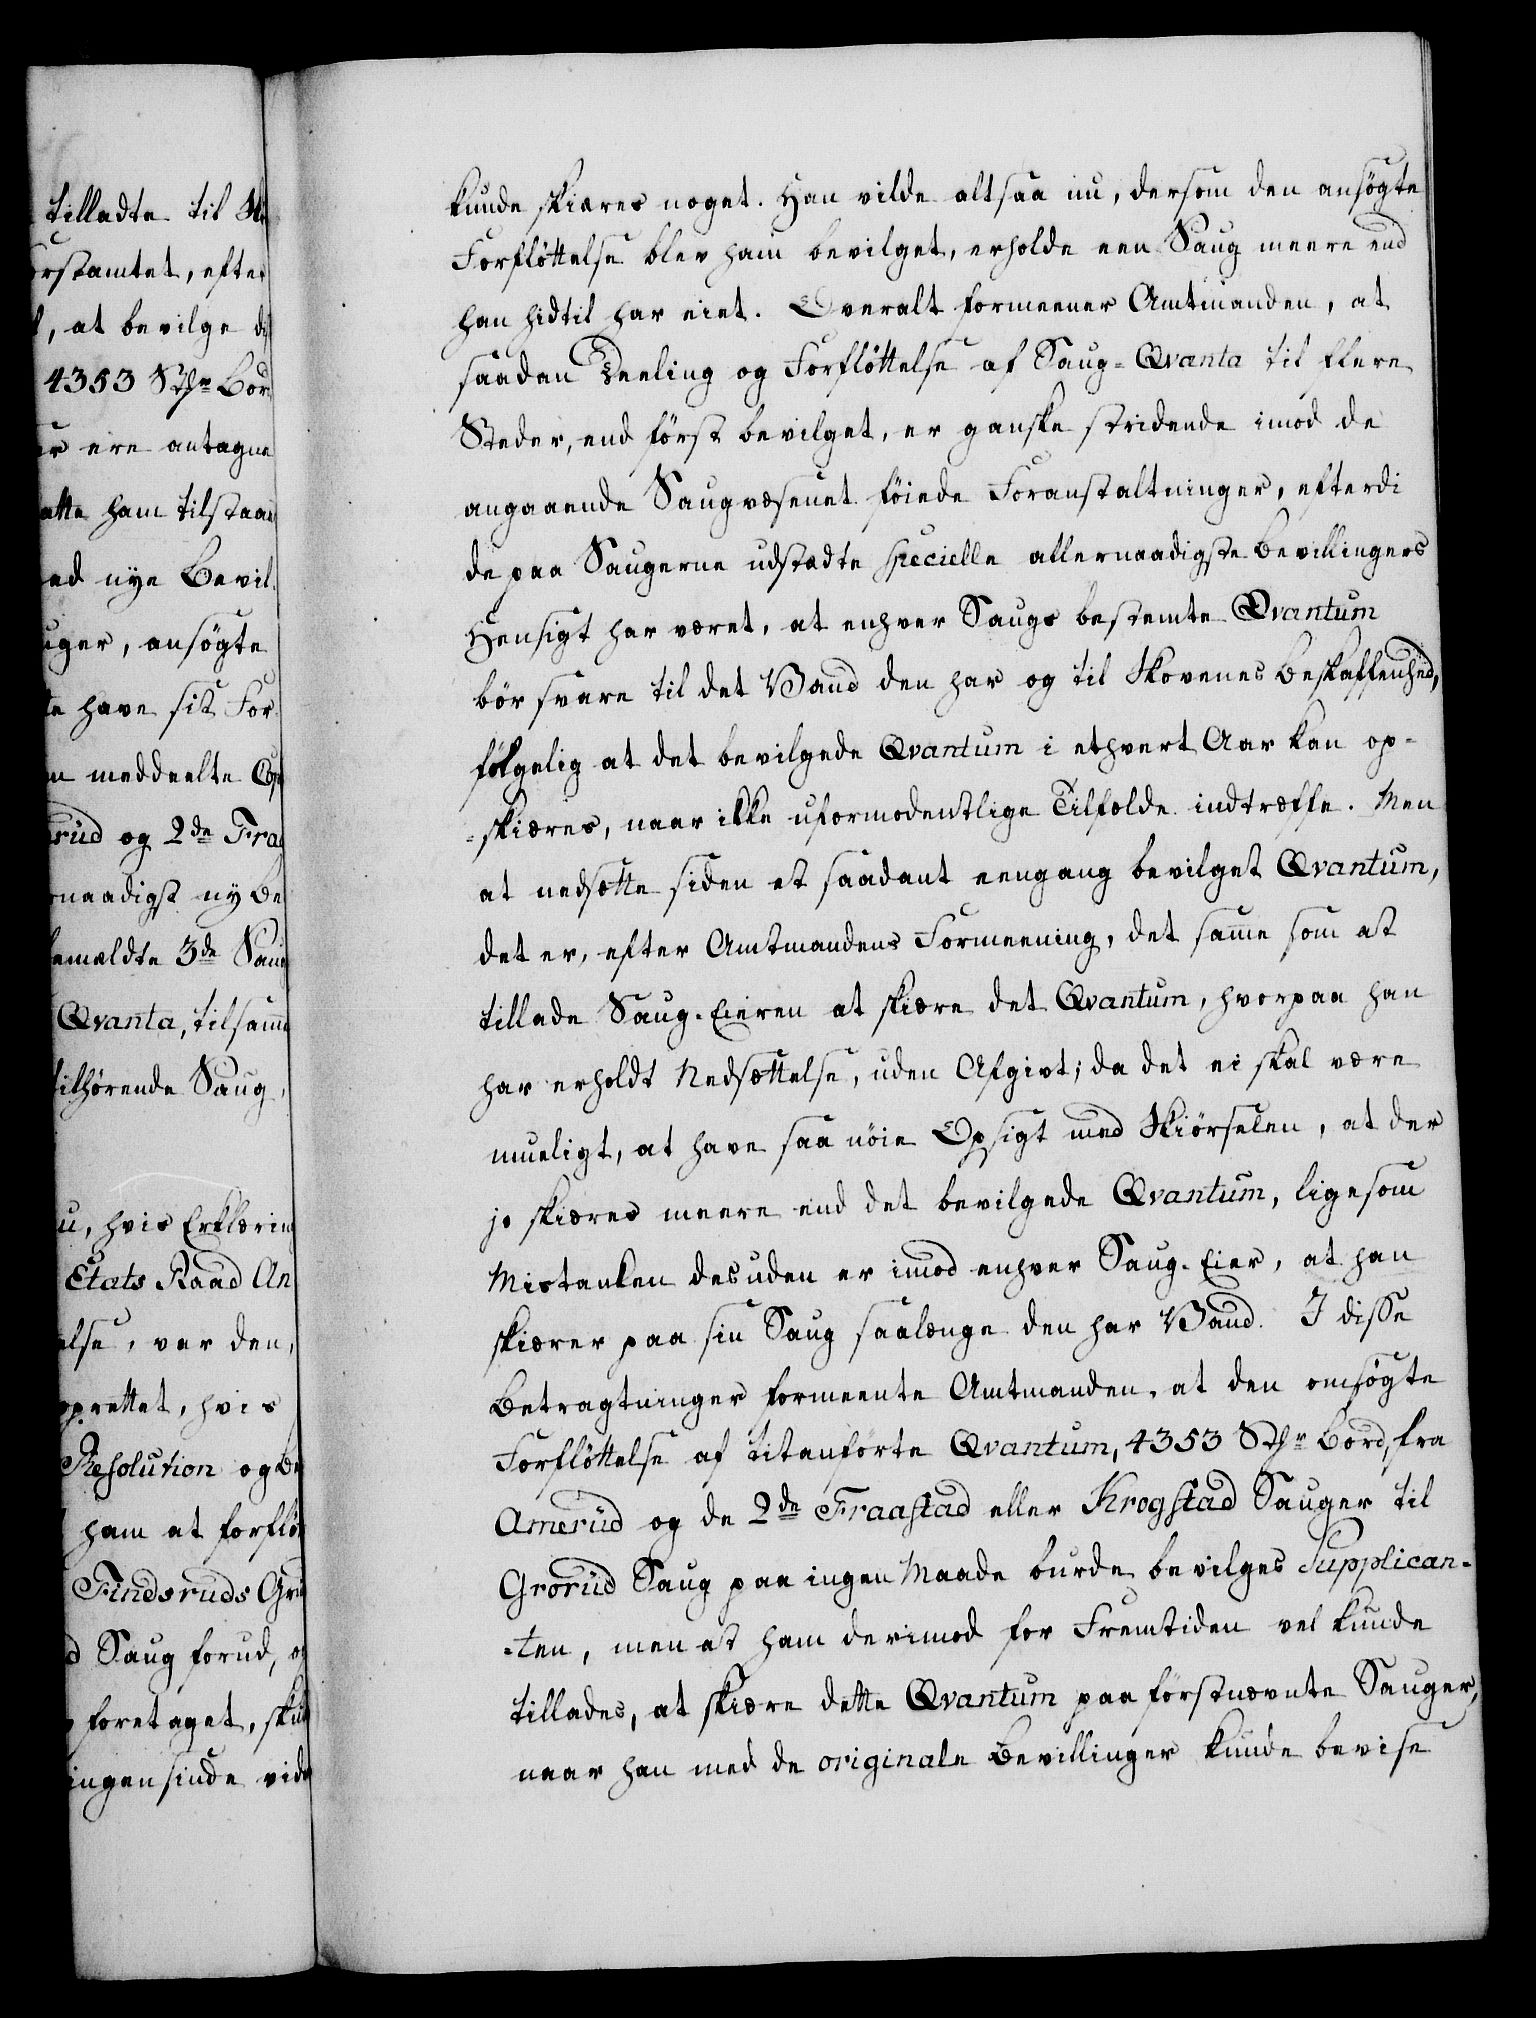 tilladte til
orstamtet, efter
, at bevilge
4353 Stkr Bor
er ere antagne
atte ham tilstaae
ed nye Bevil
uger, ansøgte
te have sit For
n meddeelte
rud og 2de Fra
naadigst ny Be
emældte 3de Saug
Qvanta, tilsamme
tilhørende Saug,
u, hvis Erklæring
Etats Raad An
else, var den,
oprettet, hvis
Resolution og Be
ham at forflø
Findsruds Gru
d Saug forud, og
foretaget, skul
ingensinde vide
kunde skiæres noget. Han vilde altsaa nu, dersom den ansøgte
Forfløttelse blev ham bevilget, erholde een Saug meere end
han hidtil har eiet. Overalt formeener Amtmanden, at
saadan Deeling og Forfløttelse af Saug-Qvanta til flere
Steder, end først bevilget, er ganske stridende imod de
angaaende Saugvæsenet føiede Foranstaltninger, efterdi
de paa Saugerne udstædte specielle allernaadigste Bevillingers
Hensigt har været, at enhver Saugs bestemte Qvantum
bør svare til det Vand den har og til Skovenes Beskaffenhed,
følgelig at det bevilgede Qvantum i ethvert Aar kan op-
-skiæres, naar ikke uformodentlige Tilfælde indtræffe. Men
at nedsætte siden et saadant eengang bevilget Qvantum,
det er, efter Amtmandens Formeening, det samme som at
tillade Saug-Eieren at skiære det Qvantum, hvorpaa han
har erholdt Nedsættelse, uden Afgivt; da det ei skal være
mueligt, at have saa nøie Opsigt med Skiørselen, at der
jo skiæres meere end det bevilgede Qvantum, ligesom
Mistanken desuden er imod enhver Saug-Eier, at han
skiærer paa sin Saug saalænge den har Vand. I disse
Betragtninger formeente Amtmanden, at den omsøgte
Forfløttelse af titanførte Qvantum, 4353 Stkr Bord, fra
Amerud og de 2de Fraastad eller Krogstad Sauger til
Grorud Saug paa ingen Maade burde bevilges Supplican-
-ten, men at ham derimod for Fremtiden vel kunde
tillades, at skiære dette Qvantum paa førstnævnte Sauger,
naar han med de originale Bevillinger kunde bevise